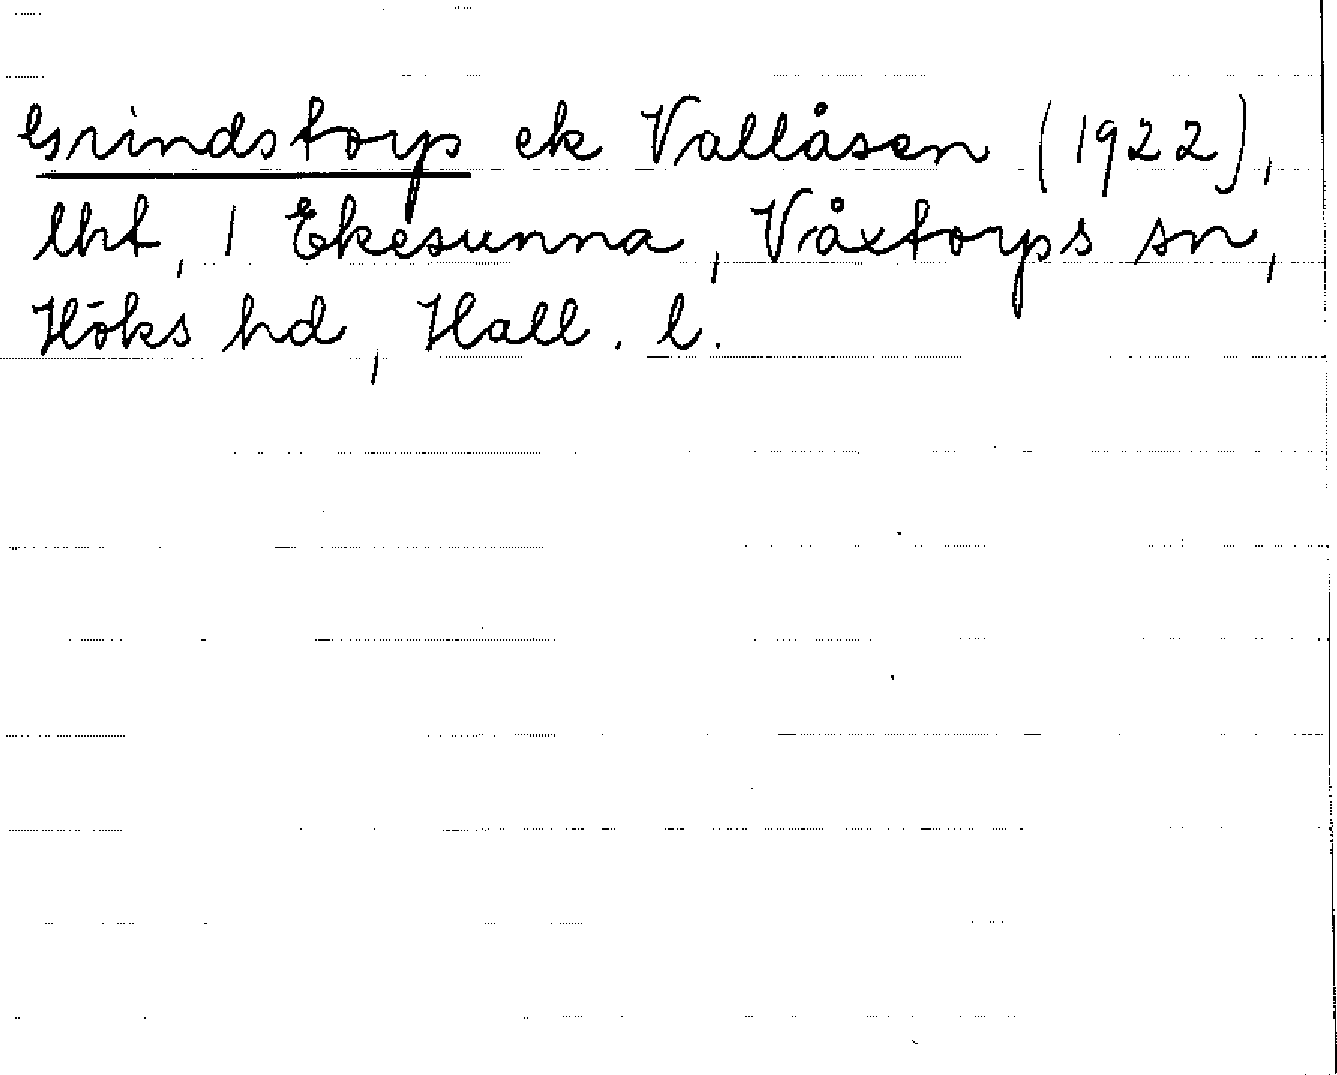 Grindstorp ek Vallåsen (1922),
lht, 1 Ekesunna, Våxtorps sn,
Höks hd, Hall. l.